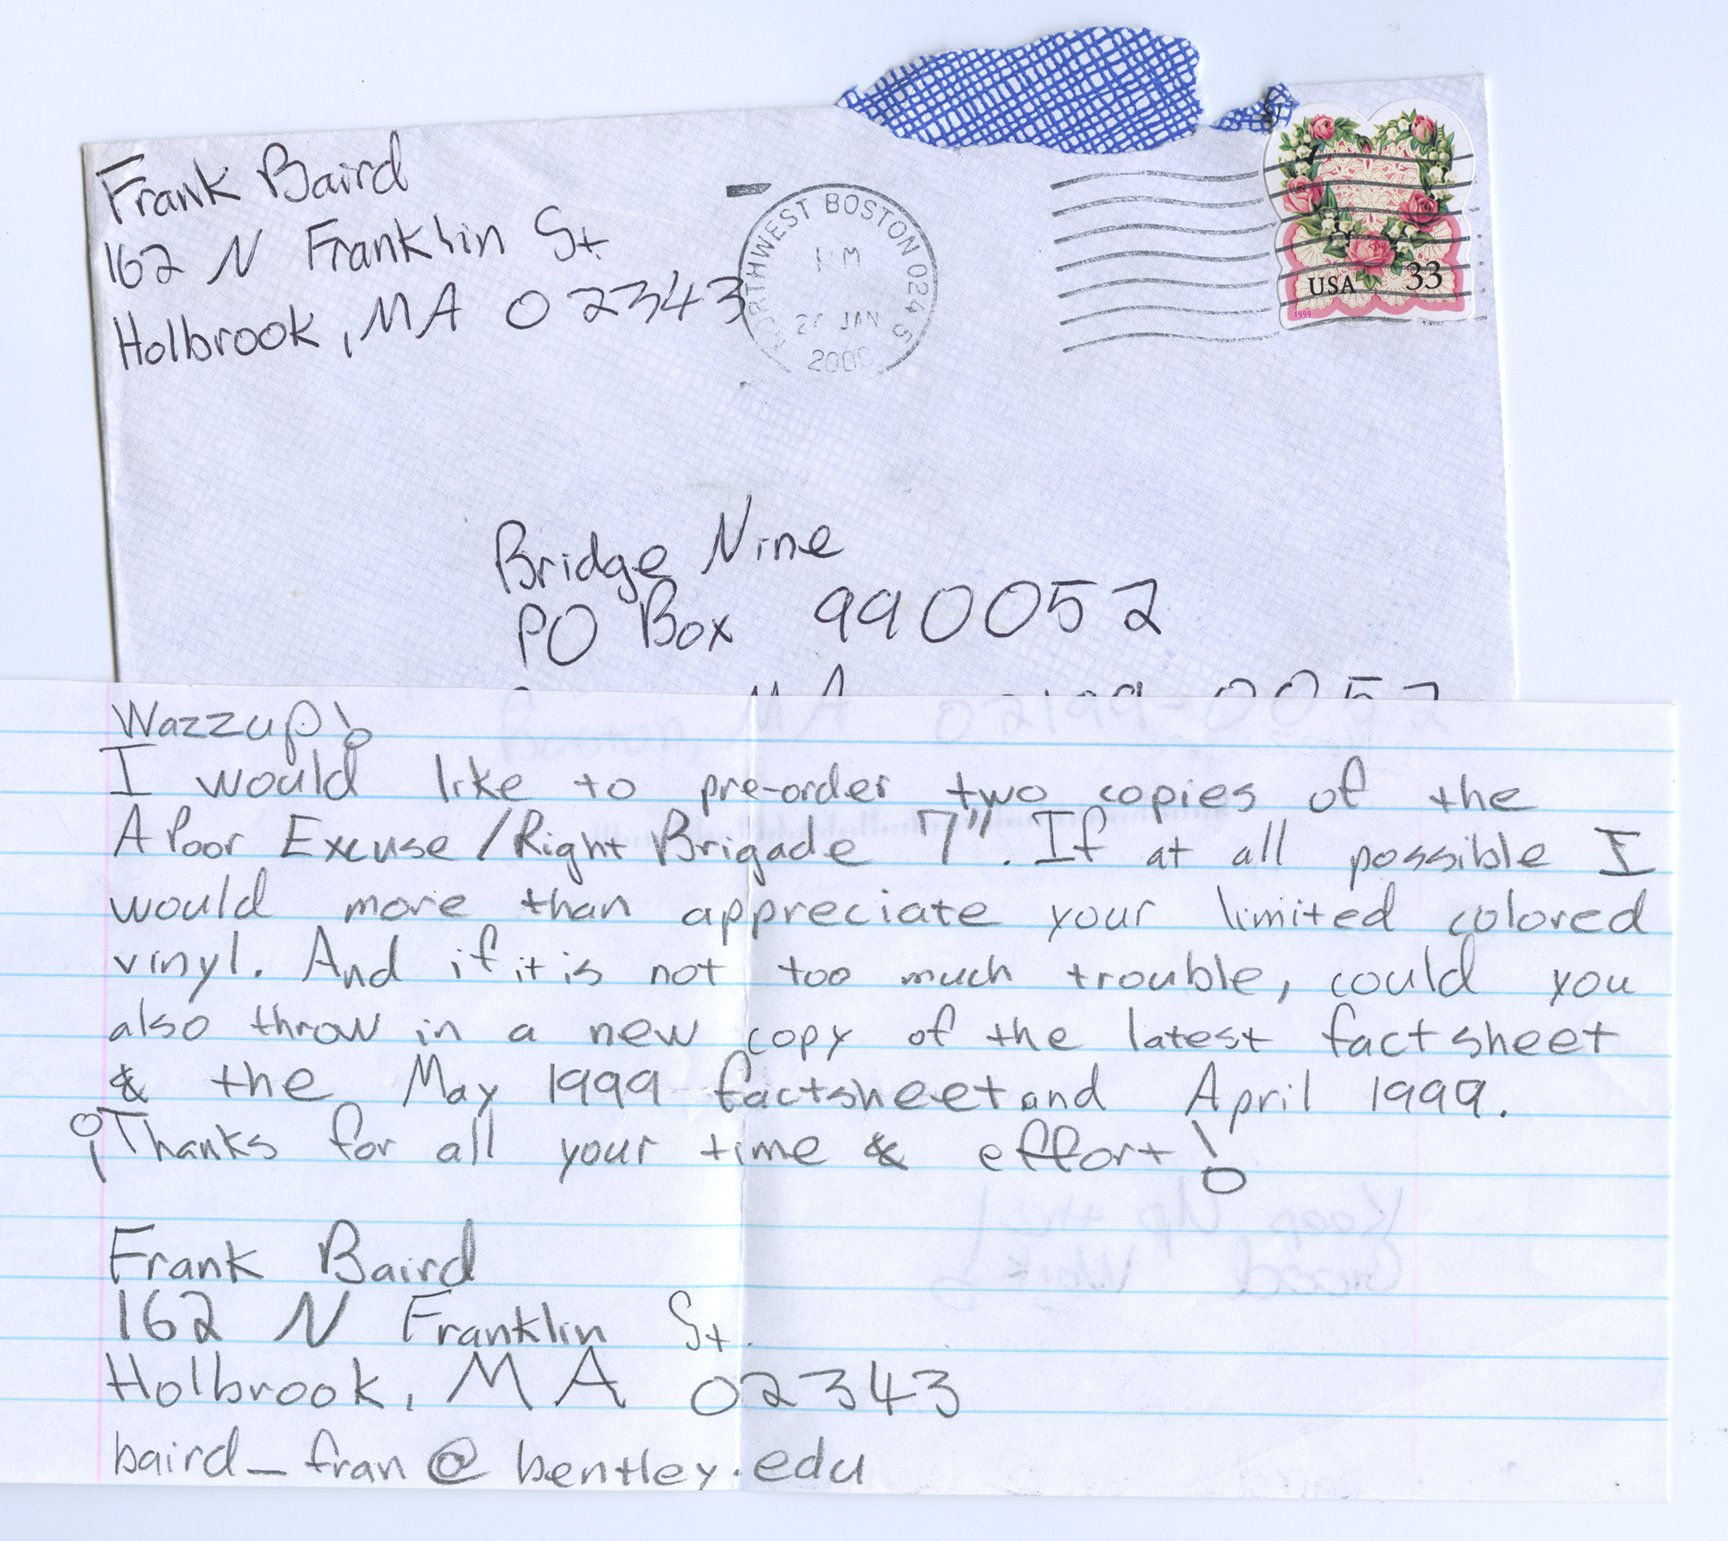 Frank Baird
162 N Franklin St
Holbrook, MA 02343
NORTHWEST BOSTON 024
PM
JAN
2000
USA 33
1999
Bridge Nine
PO Box 990052
MA 02199-0052
Wazzup!
I would like to pre-order two copies of the
A Poor Excuse/Right Brigade 7". If at all possible I
would more than appreciate your limited colored
vinyl. And if it is not too much trouble, could you
also throw in a new copy of the latest factsheet
& the May 1999 factsheet and April 1999.
¡Thanks for all your time & effort!
Frank Baird
162 N Franklin St.
Holbrook, MA 02343
baird_fran@bentley.edu
Keep Up the
Good Work